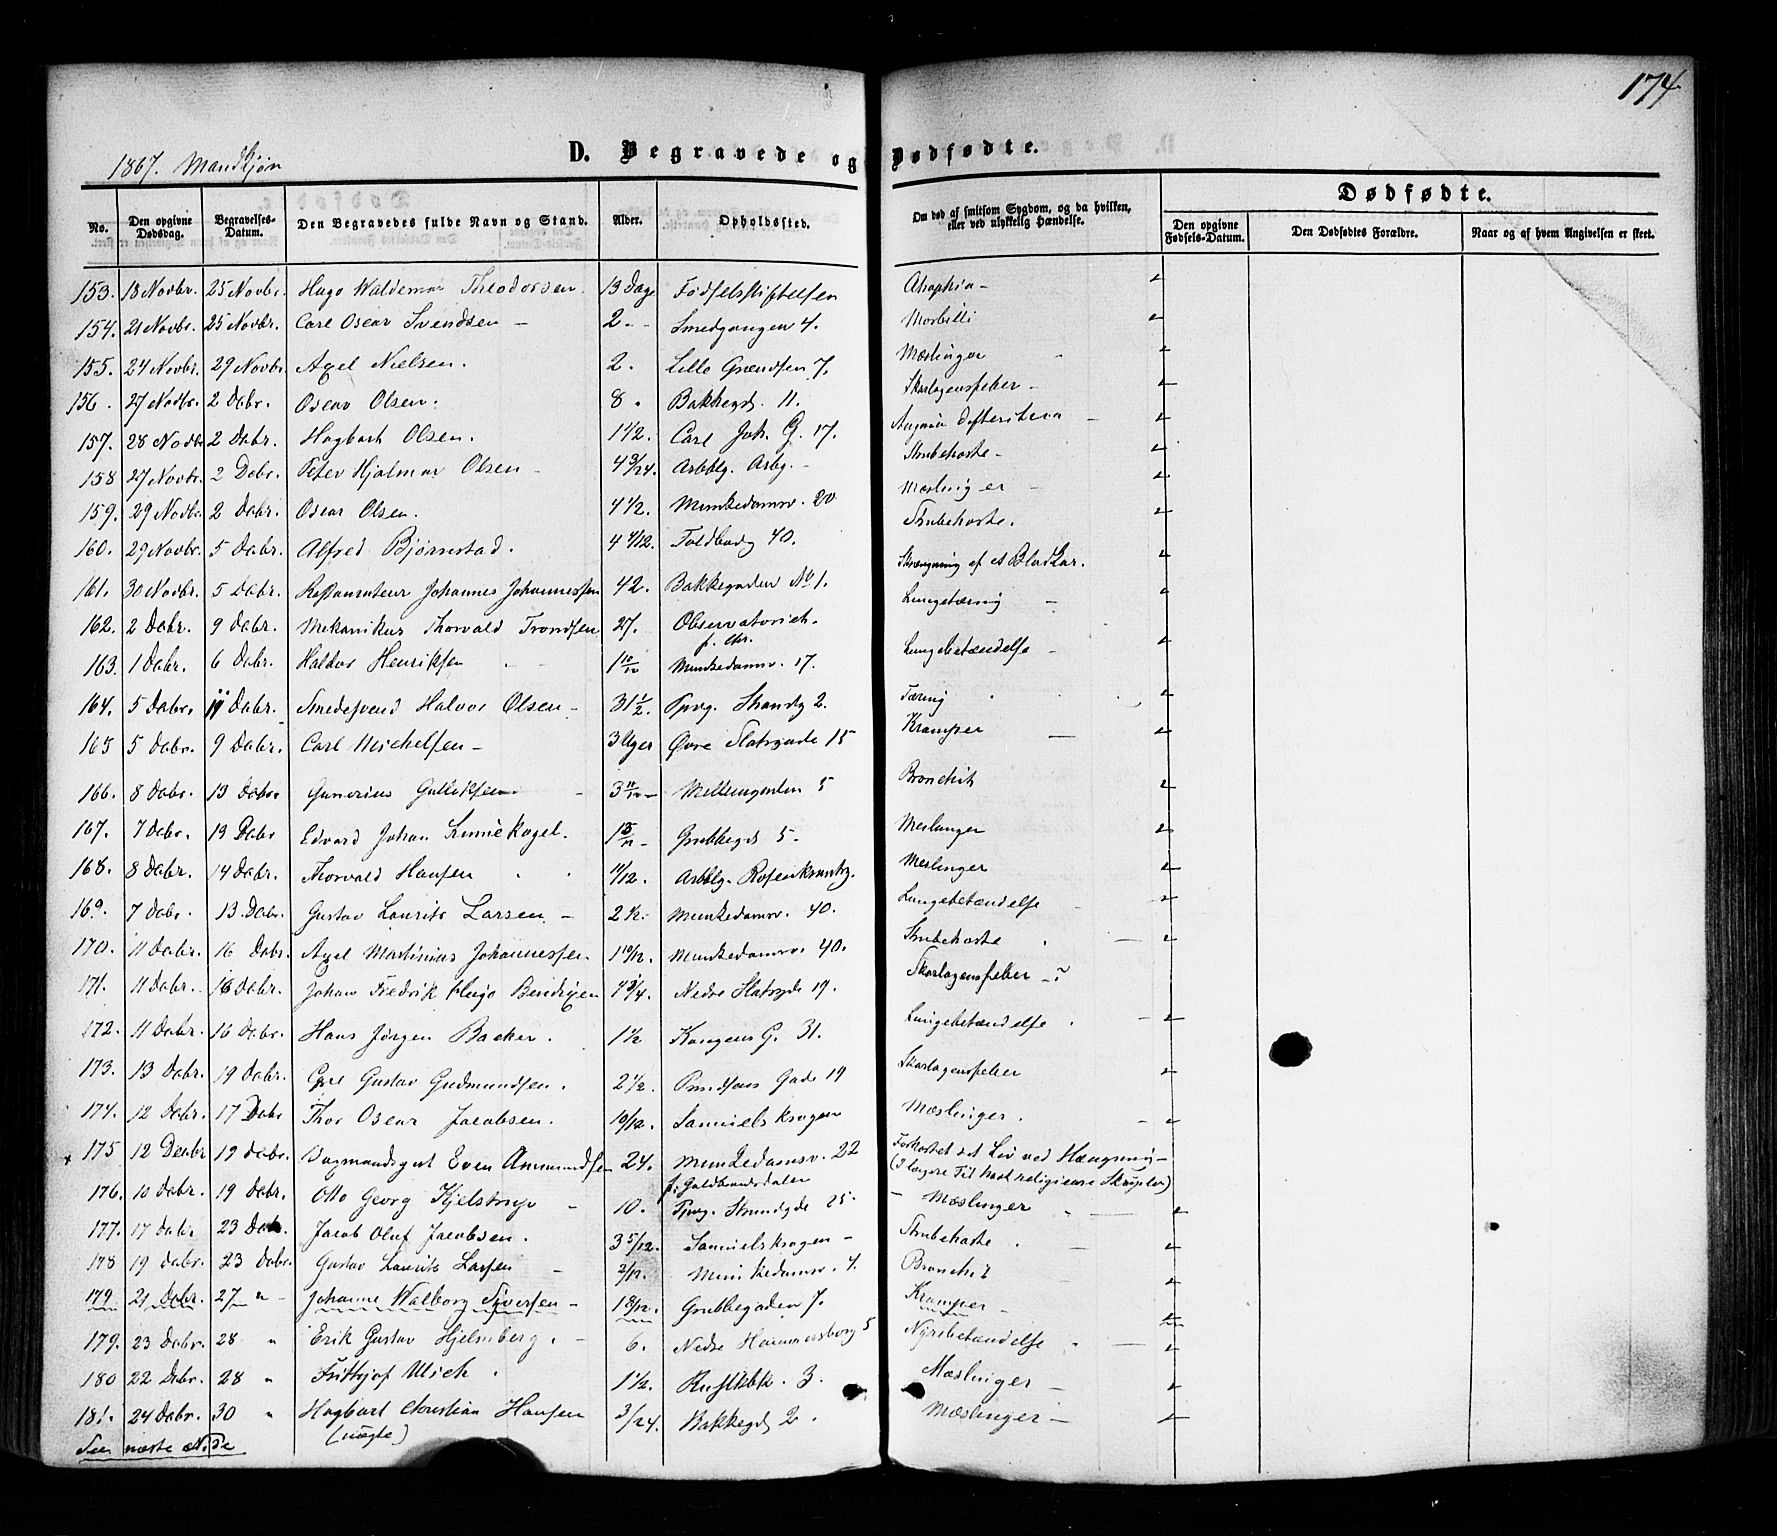 174
1867. Mandkjøn
D. Begravede og Dødfødte.
No. | Den opgivne Dødsdag. | Begravelses-Datum. | Den Begravedes fulde Navn og Stand. | Alder. | Opholdssted. | Om død af smitsom Sygdom, og da hvilken, eller ved ulykkelig Hændelse. | Dødfødte. | Den opgivne Fødsels-Datum. | Den Dødfødtes Forældre. | Naar og af hvem Angivelsen er skeet.
153. 18 Novbr. 25 Novbr. Hugo Waldemar Theodorsen. 13 Dage Fødselsstiftelsen Atrophia -
154. 21 Novbr. 25 Novbr. Carl Oscar Svendsen - 2. - Smedgangen 4. Morbilli
155. 24 Novbr. 29 Novbr. Axel Nielsen. 2. Lille Grændsen 7. Mæslinger
156. 27 Novbr. 2 Debr. Oscar Olsen. 8. Bakkegd. 11. Skarlagensfeber -
157. 28 Novbr 2 Debr. Hagbart Olsen. 1 1/2. Carl Joh. G. 17. Angina -
158 27 Novbr. 2 Debr. Peter Hjalmar Olsen - 4 3/24. Arbblg. Arbg. - Strubehoste -
159. 29 Novbr. 2 Debr. Oscar Olsen. 4 1/2. Munkedamsv. 20 Mæslinger -
160. 29 Novbr. 5 Debr. Alfred Bjørnstad. 4 4/12. Toldbodg 40. Strubehoste.
161. 30 Novbr. 5 Debr. Restaurateur Johannes Johannessen 42. Bakkegaden No 1. Sprængning af et Blodkar.
162. 2 Debr. 9 Debr. Mekanikus Thorvald Trondsen 27. Observatorieh. Lungetæring -
163. 1 Debr. 6 Debr. Haldor Henriksen 1 10/12 Munkedamsv. 17. Lungebetændelse -
164. 5 Debr. 11 Debr. Smedesvend Halvor Olsen - 31 1/2. Pprvg. Strandg 2. Tæring
165 5 Debr. 9 Debr. Carl Michelsen - 3 Uger Øvre Slotsgade 15 Kramper
166. 8 Debr. 13 Debr. Gunerius Gulliksen. 3 11/12 - Mellemgaden 5 Bronchit
167. 7 Debr. 13 Debr Edvard Johan Kogel. Grubbegd 5. Meslinger
168. 8 Debr. 14 Debr. Thorvald Hansen 11/12. Arbblg. Rosenkrantzg. Meslinger
169. 7 Debr. 13. Debr. Gustav Laurits Larsen - 2 1/2. Munkedamsv. 40. Lungebetændelse
170. 11 Debr. 16 Debr. Axel Martinius Johannessen. 1 10/12. Munkedamsv. 40. Strubehoste
171. 11 Debr. 16 Debr. Johan Fredrik Hugo Bendixen 4 3/4. Nedre Slotsgde 19. Skarlagensfeber - ?
172. 11 Debr. 16 Debr. Hans Jørgen Backer. 1 1/2 Kongens G. 31. Lungebetændelse.
173. 13 Debr. 19 Debr. Carl Gustav Gudmundsen. 2 1/2. Gade 19 Skarlagensfeber
174. 12 Debr. 17 Debr Thor Oscar Jacobsen. 10/12. Samuels krogen Mæslinger.
175 12 Decbr 19 Debr. Dagmandsgut Even Ammundsen 24. Munkedamsv. 22 Forkortet sit Liv ved Hængning - (I længere Tid læst religieuse Skrifter)
176. 10 Debr. 19 Debr. Otto Georg Kjelstrup 10. Pprvg. Strandgde 25. Mæslinger
177. 17 Debr 23 Debr. Jacob Oluf Jacobsen. 3 5/12. Samuelskrogen - Strubehoste
178 19 Debr. 23 Debr. Gustav Laurits Larsen 2/12. Munkedamsv. 4. Bronchit
179 21 Debr. 27 " - Johanne Walborg Syversen - 1 8/12. Grubbegaden 7. Kramper -
179. 23 Debr. 28 " Erik Gustav Hjelmberg. 6. Nedre Hammersborg 5 Nyrebetændelse
180 22 Debr. 28 " Frithjof Ulrich. 1 1/2. Rustkbk. 3. Mæslinger -
181. 24 Debr. 30 " Hagbart Christian Hansen (uægte) 3/24. Bakkegd 2. Mæslinger -
See næste Side